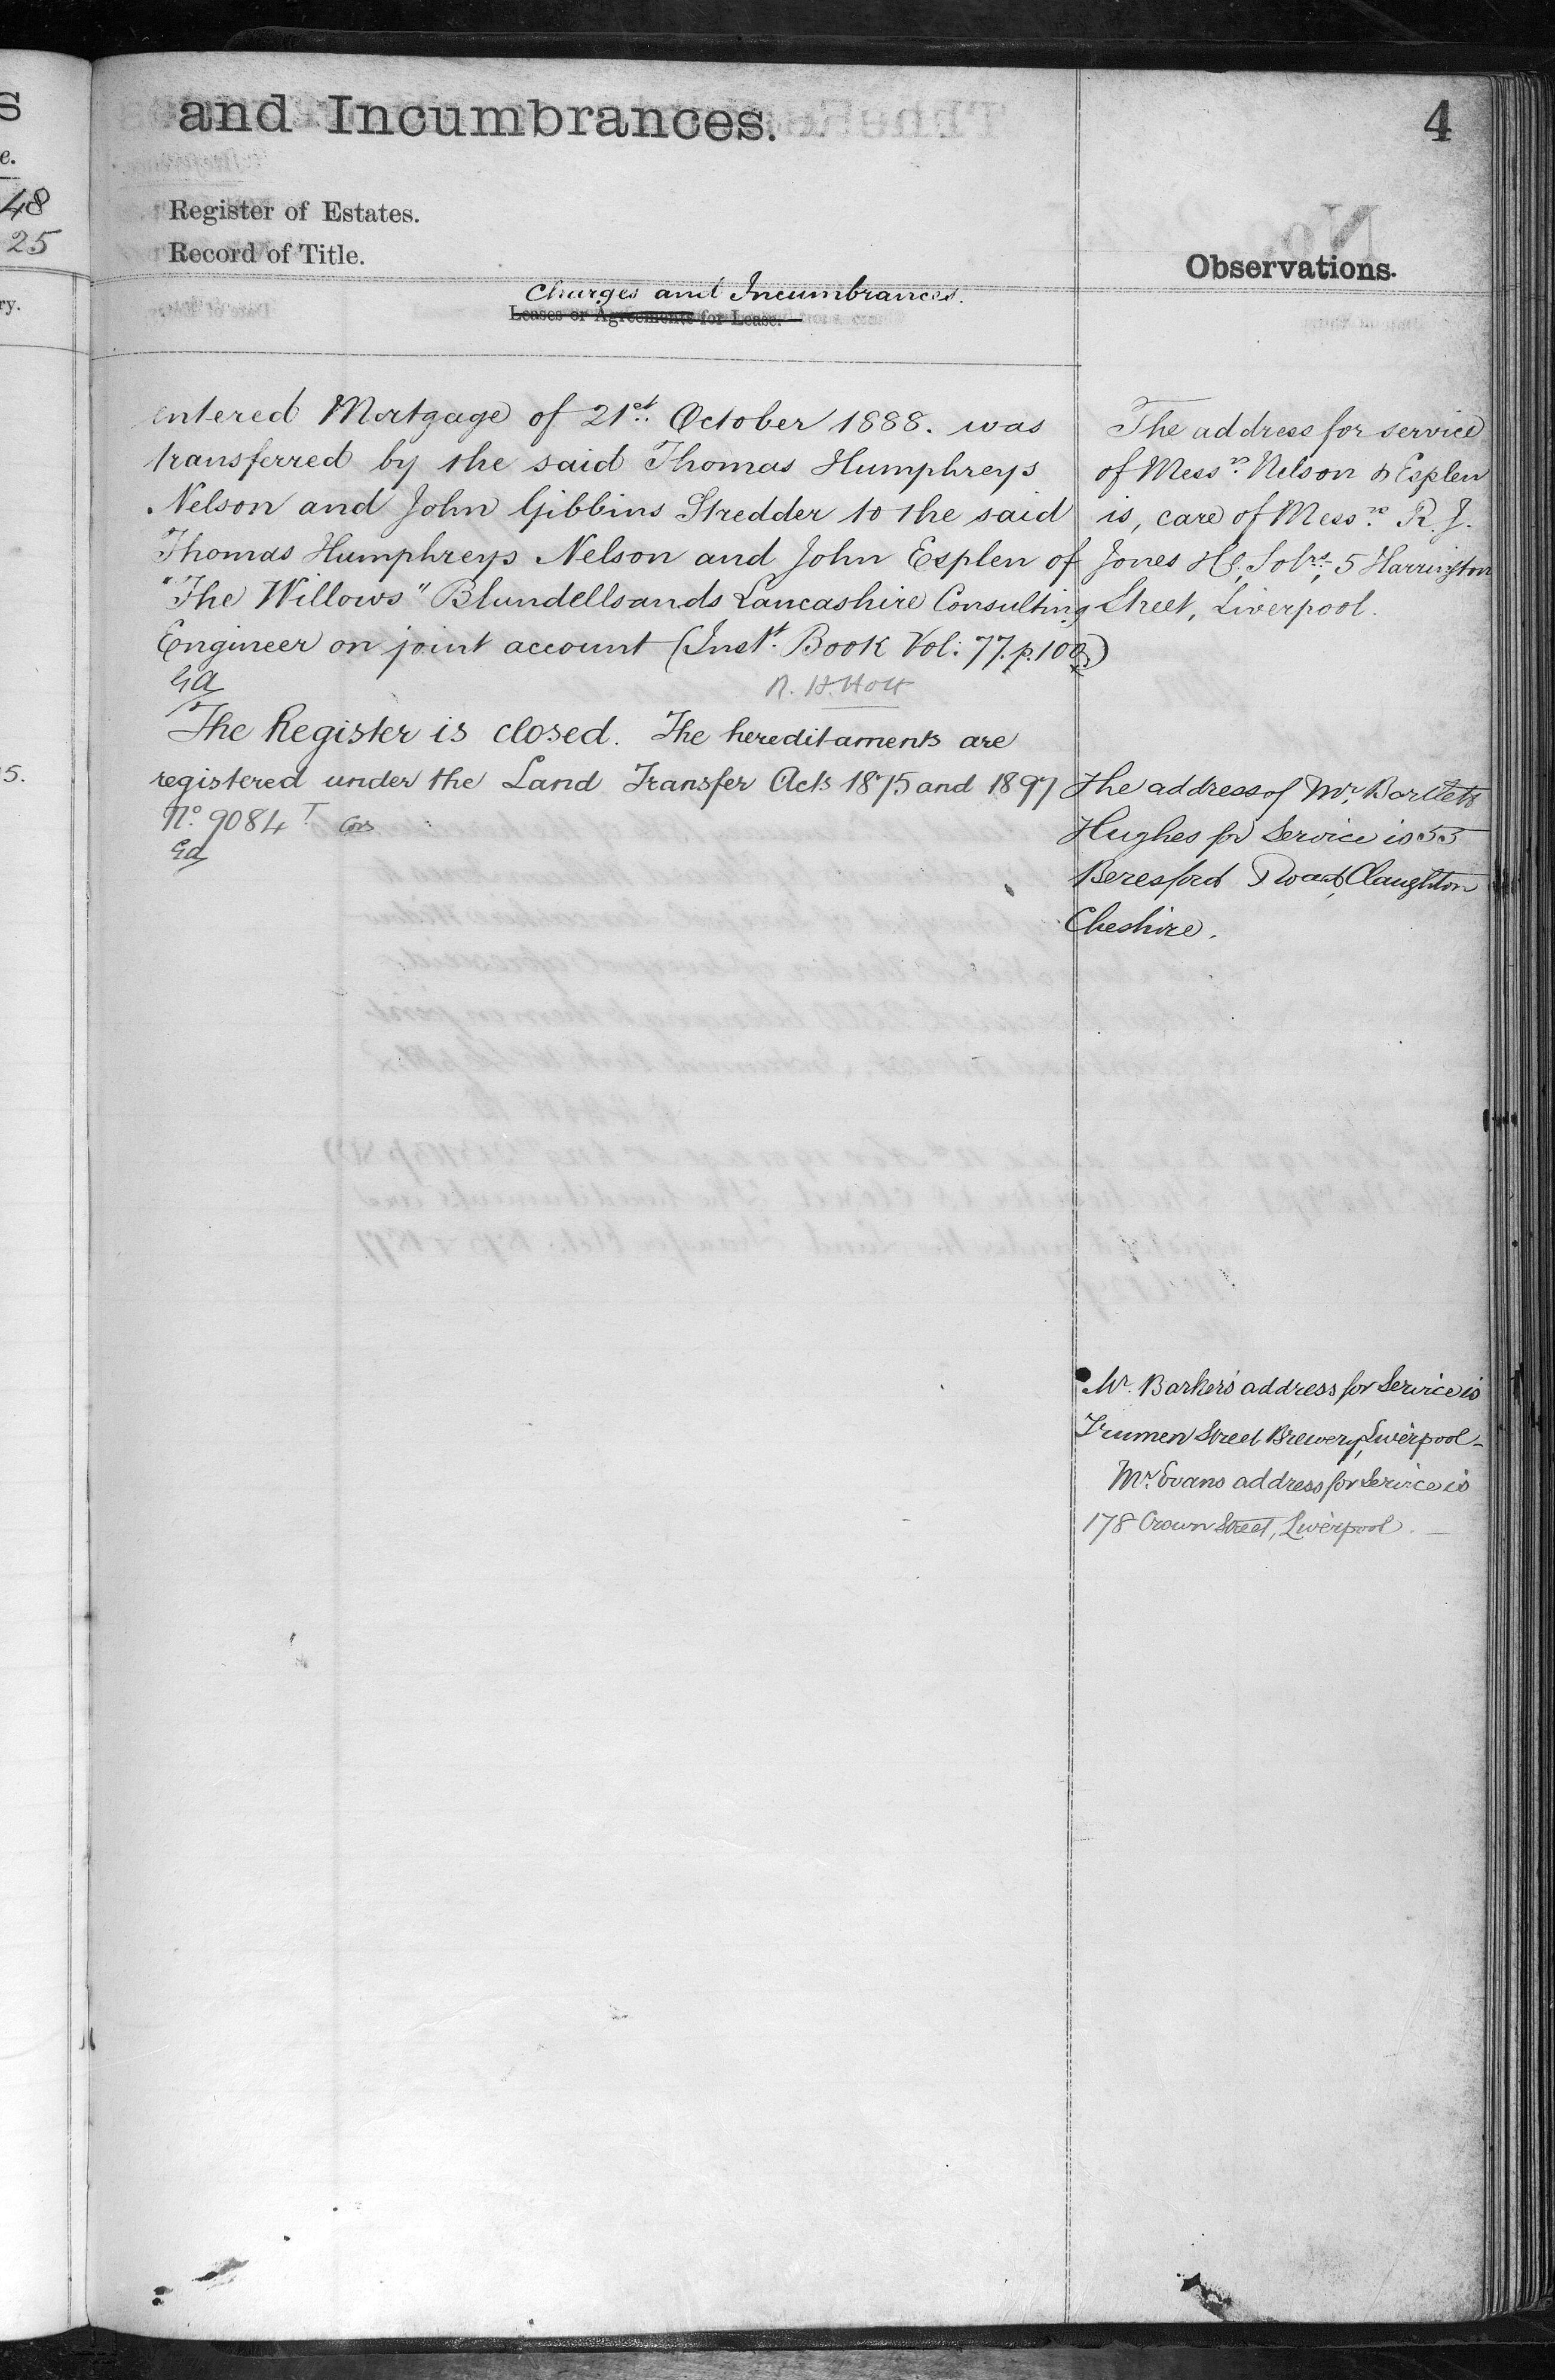 and Incumbrances.
4
Register of Estates.
Record of Title.
Observations.
Charges and Incumbrances.
Leases or Agreements for Lease.
entered Mortgage of 21st October 1888. was
transferred by the said Thomas Humphreys
Nelson and John Gibbins Stredder to the said
Thomas Humphreys Nelson and John Esplen of
"The Willows" Blundellsands Lancashire Consulting
Engineer on joint account (Inst. Book Vol: 77. p. 100)
GA
R. H. Holt
The Register is closed. The hereditaments are
registered under the Land Transfer Acts 1875 and 1897
No. 9084
GA
The address for service
of Messrs. Nelson & Esplen
is, care of Messrs. R. J.
Jones & Co, Solrs, 5 Harrington
Street, Liverpool.
The address of Mr. Bartlett
Hughes for Service is 55
Beresford Road, Claughton
Cheshire.
Mr. Barker's address for Service is
Trumen Street Brewery, Liverpool -
Mr. Evans address for Service is
178 Crown Street, Liverpool. -
s
e.
48
25
ry.
5.